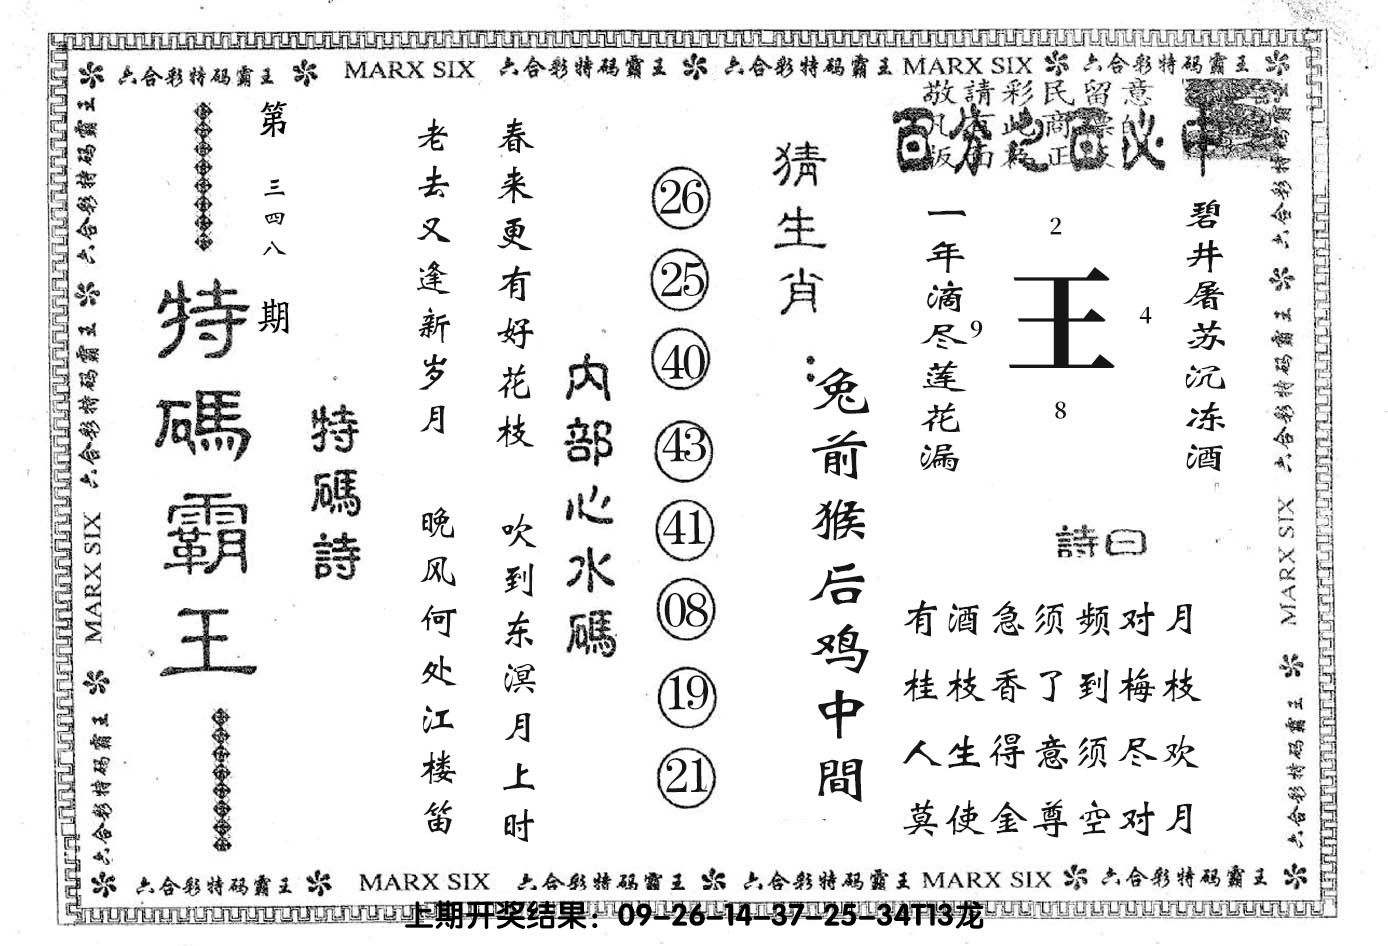 六合彩特码霸王 MARX SIX 六合彩特码霸王 六合彩特码霸王 MARX SIX 六合彩特码霸王
敬請彩民留意
百分之百必中
碧井屠苏沉冻酒
2
王
9
4
8
一年滴尽莲花漏
詩曰
有酒急须频对月
桂枝香了到梅枝
人生得意须尽欢
莫使金尊空对月
猜生肖：
兔前猴后鸡中間
26
25
40
43
41
08
19
21
内部心水碼
春来更有好花枝 吹到东溟月上时
老去又逢新岁月 晚风何处江楼笛
特碼詩
第三四八期
特碼霸王
六合彩特码霸王 六合彩特码霸王 MARX SIX 六合彩特码霸王
六合彩特码霸王 六合彩特码霸王 MARX SIX 六合彩特码霸王
六合彩特码霸王 MARX SIX 六合彩特码霸王 六合彩特码霸王 MARX SIX 六合彩特码霸王
上期开奖结果：09-26-14-37-25-34T13龙